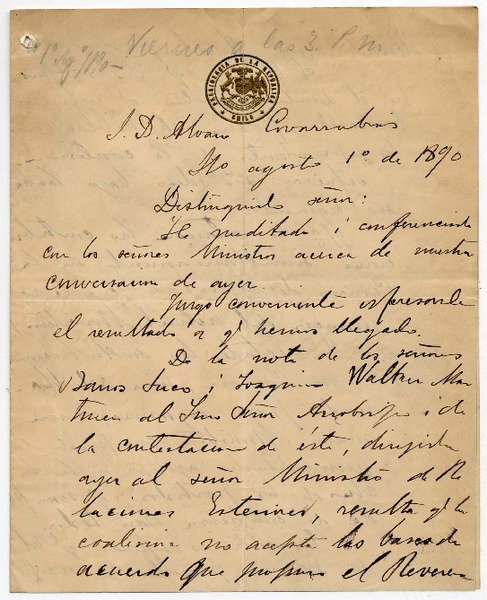 1º agº 1890 Viernes a las 3. P.M.
PRESIDENCIA DE LA REPUBLICA
CHILE
S. D. Alvaro Covarrubias
Stº. agosto 1º de 1890
Distinguido señor:
He meditado i conferenciado
con los señores Ministros acerca de nuestra
conversacion de ayer.
Juzgo conveniente espresarle
el resultado a q' hemos llegado.
De la nota de los señores
Barros Luco i Joaquin Walker Mar-
tinez al Iltmo Señor Arzobispo i de
la contestacion de éste, dirijida
ayer al señor Ministro de Re
laciones Esteriores, resulta q' la
coalicion no acepta las bases de
acuerdo que propuso el Reveren